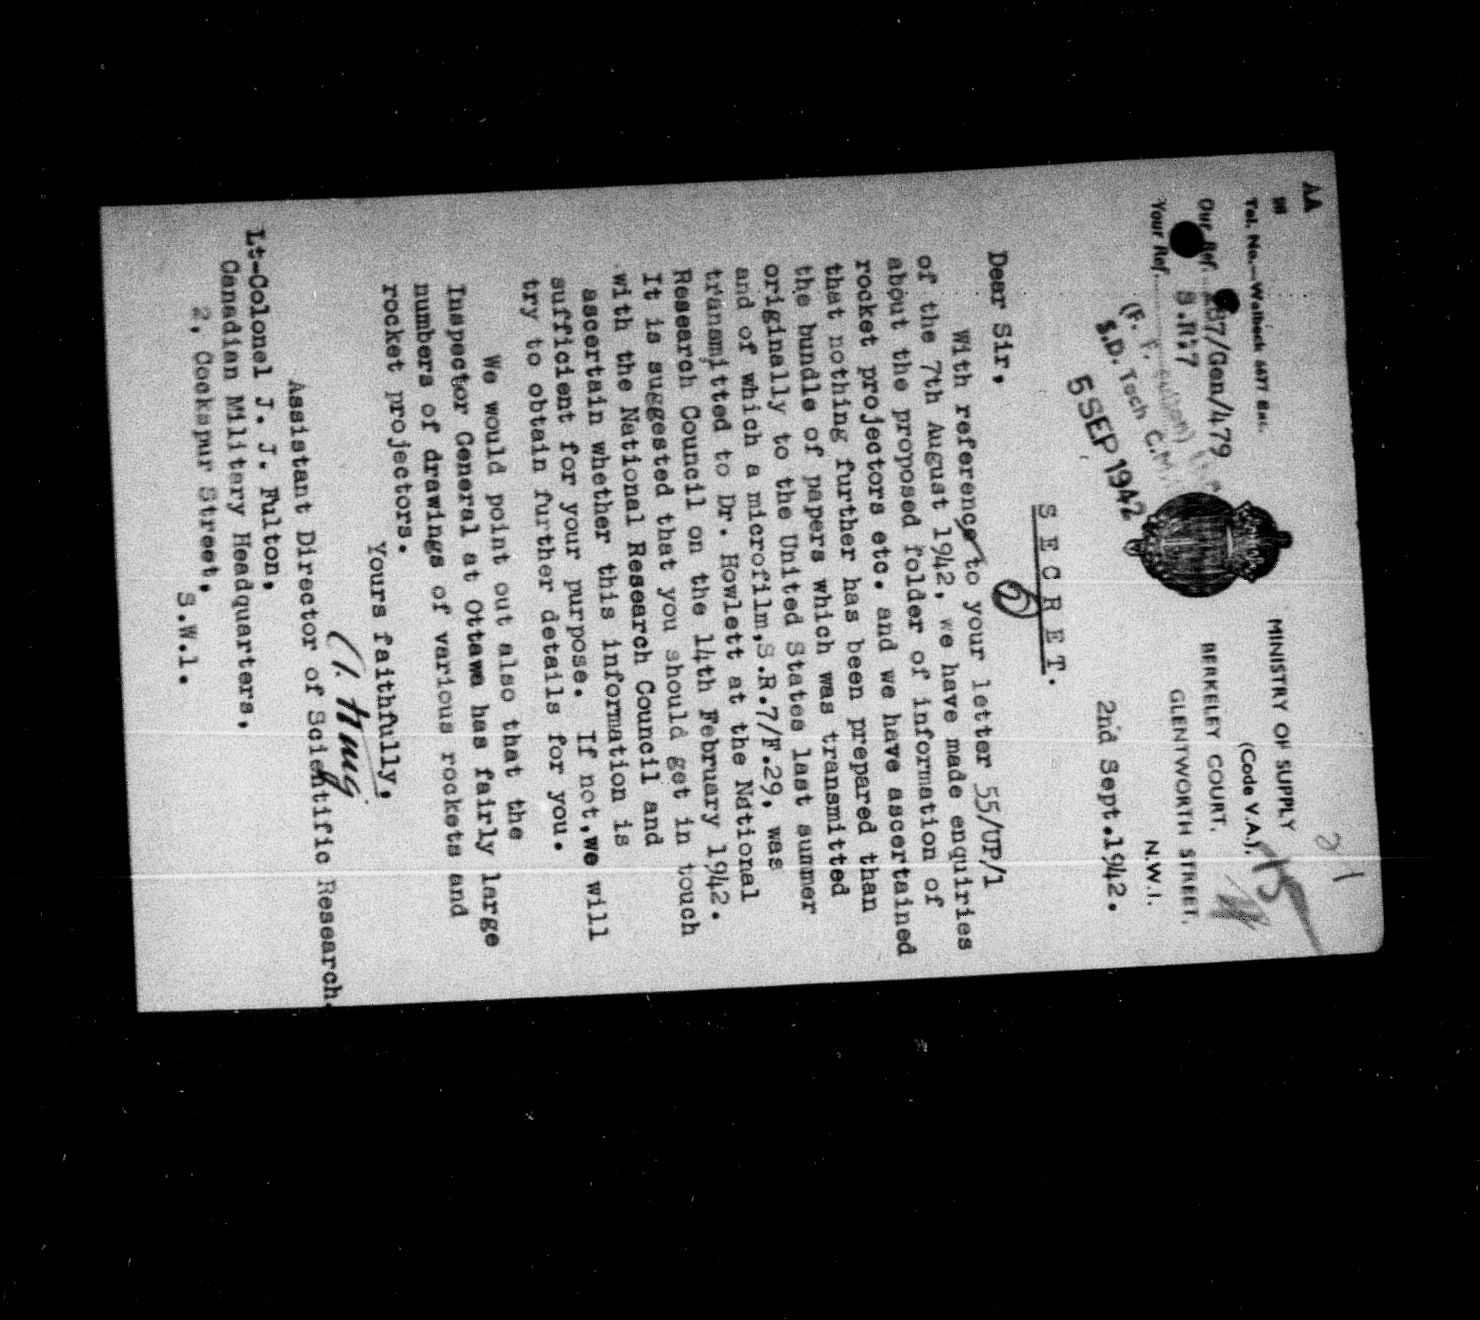 AA
Tel. No.—Welbeck 6677 Ext.
Our Ref. 287/Gen/479
S.R.7
Your Ref.
(F. F. Fulton)
S.D. Tech
5 SEP 1942
MINISTRY OF SUPPLY
(Code V.A.),
BERKELEY COURT,
GLENTWORTH STREET,
N.W.1.
2nd Sept.1942.
S E C R E T.
Dear Sir,
With reference to your letter 55/UP/1
of the 7th August 1942, we have made enquiries
about the proposed folder of information of
rocket projectors etc. and we have ascertained
that nothing further has been prepared than
the bundle of papers which was transmitted
originally to the United States last summer
and of which a microfilm,S.R.7/F.29, was
transmitted to Dr. Howlett at the National
Research Council on the 14th February 1942.
It is suggested that you should get in touch
with the National Research Council and
ascertain whether this information is
sufficient for your purpose. If not,we will
try to obtain further details for you.
We would point out also that the
Inspector General at Ottawa has fairly large
numbers of drawings of various rockets and
rocket projectors.
Yours faithfully,
Assistant Director of Scientific Research.
Lt-Colonel J. J. Fulton,
Canadian Military Headquarters,
2, Cockspur Street,
S.W.1.